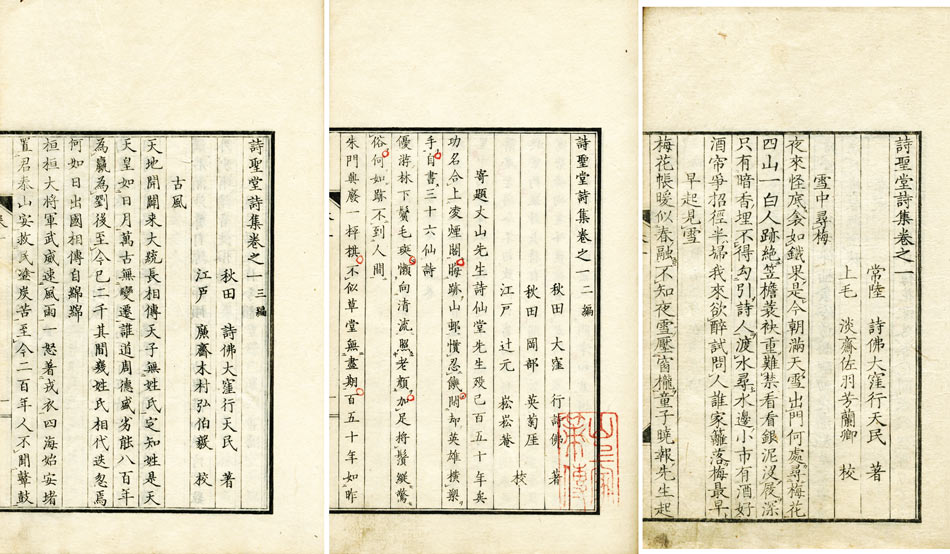 詩聖堂詩集卷之一
常陸 詩佛大窪行天民 著
上毛 淡齋佐羽芳蘭卿 校
雪中尋梅
夜來怪底衾如鐵果是今朝滿天雪出門何處尋梅花
四山一白人跡絶笠檐蓑袂重難禁看看銀泥没屐深
只有暗香埋不得勾引詩人渡水尋水邊小市有酒好
酒帘爭招徑半埽我來欲醉試問人誰家籬落梅最早
早起見雪
梅花帳暖似春融不知夜雪壓窗櫳童子曉報先生起
詩聖堂詩集卷之一 二編
秋田 大窪 行詩佛 著
秋田 岡部 英菊厓
江戸 辻元 崧崧菴 校
寄題丈山先生詩仙堂先生殁已百五十年矣
功名合上凌煙閣晦跡山邨慣忍饑閒却英雄横槊
手自書三十六仙詩
優游林下鬢毛爽懶向清流照老顔加足将鬚縱驚
俗何如跡不到人間
朱門興廢一枰棋不似草堂無盡期百五十年如昨
詩聖堂詩集卷之一 三編
秋田 詩佛大窪行天民 著
江戸 廣齋木村弘伯毅 校
古風
天地開闢来大統長相傳天子無姓氏定知姓是天
天皇如日月萬古無變遷誰道周德盛劣能八百年
為嬴為劉後至今已二千其間幾姓氏相代迭忽焉
何如日出國相傳自緜緜
桓桓大将軍武威速風雨一怒著戎衣四海始安堵
置君泰山安救民塗炭苦至今二百年人不聞鼙鼓